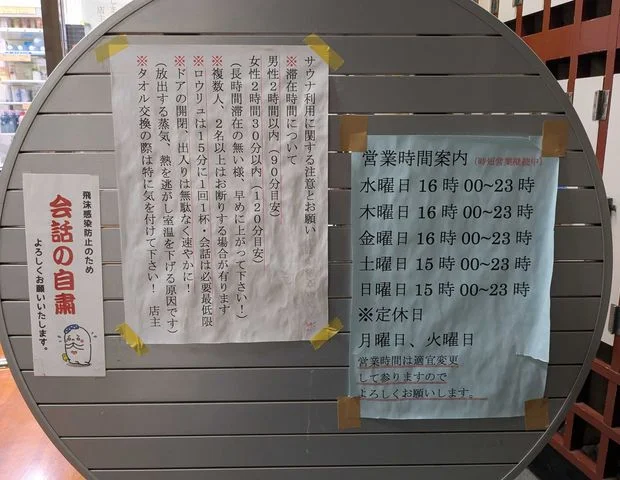 飛沫感染防止のため
会話の自粛
よろしくお願いいたします。
サウナ利用に関する注意とお願い
※滞在時間について
男性2時間以内（90分目安）
女性2時間30分以内（120分目安）
（長時間滞在の無い様、早めに上がって下さい！）
※複数人、2名以上はお断りする場合が有ります
※ロウリュは15分に1回1杯・会話は必要最低限
※ドアの開閉、出入りは無駄なく速やかに！
（放出する蒸気、熱を逃がし室温を下げる原因です）
※タオル交換の際は特に気を付けて下さい！ 店主
営業時間案内（時短営業継続中）
水曜日 16時00~23時
木曜日 16時00~23時
金曜日 16時00~23時
土曜日 15時00~23時
日曜日 15時00~23時
※定休日
月曜日、火曜日
営業時間は適宜変更
して参りますので
よろしくお願いします。